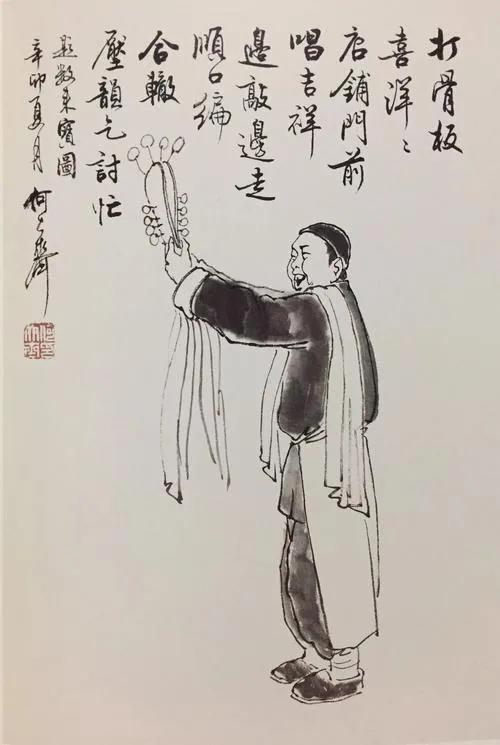 打骨板
喜洋〻
店鋪門前
唱吉祥
邊敲邊走
順口编
合轍
壓韻乞討忙
題数来寳圖
辛卯夏月 何大齊